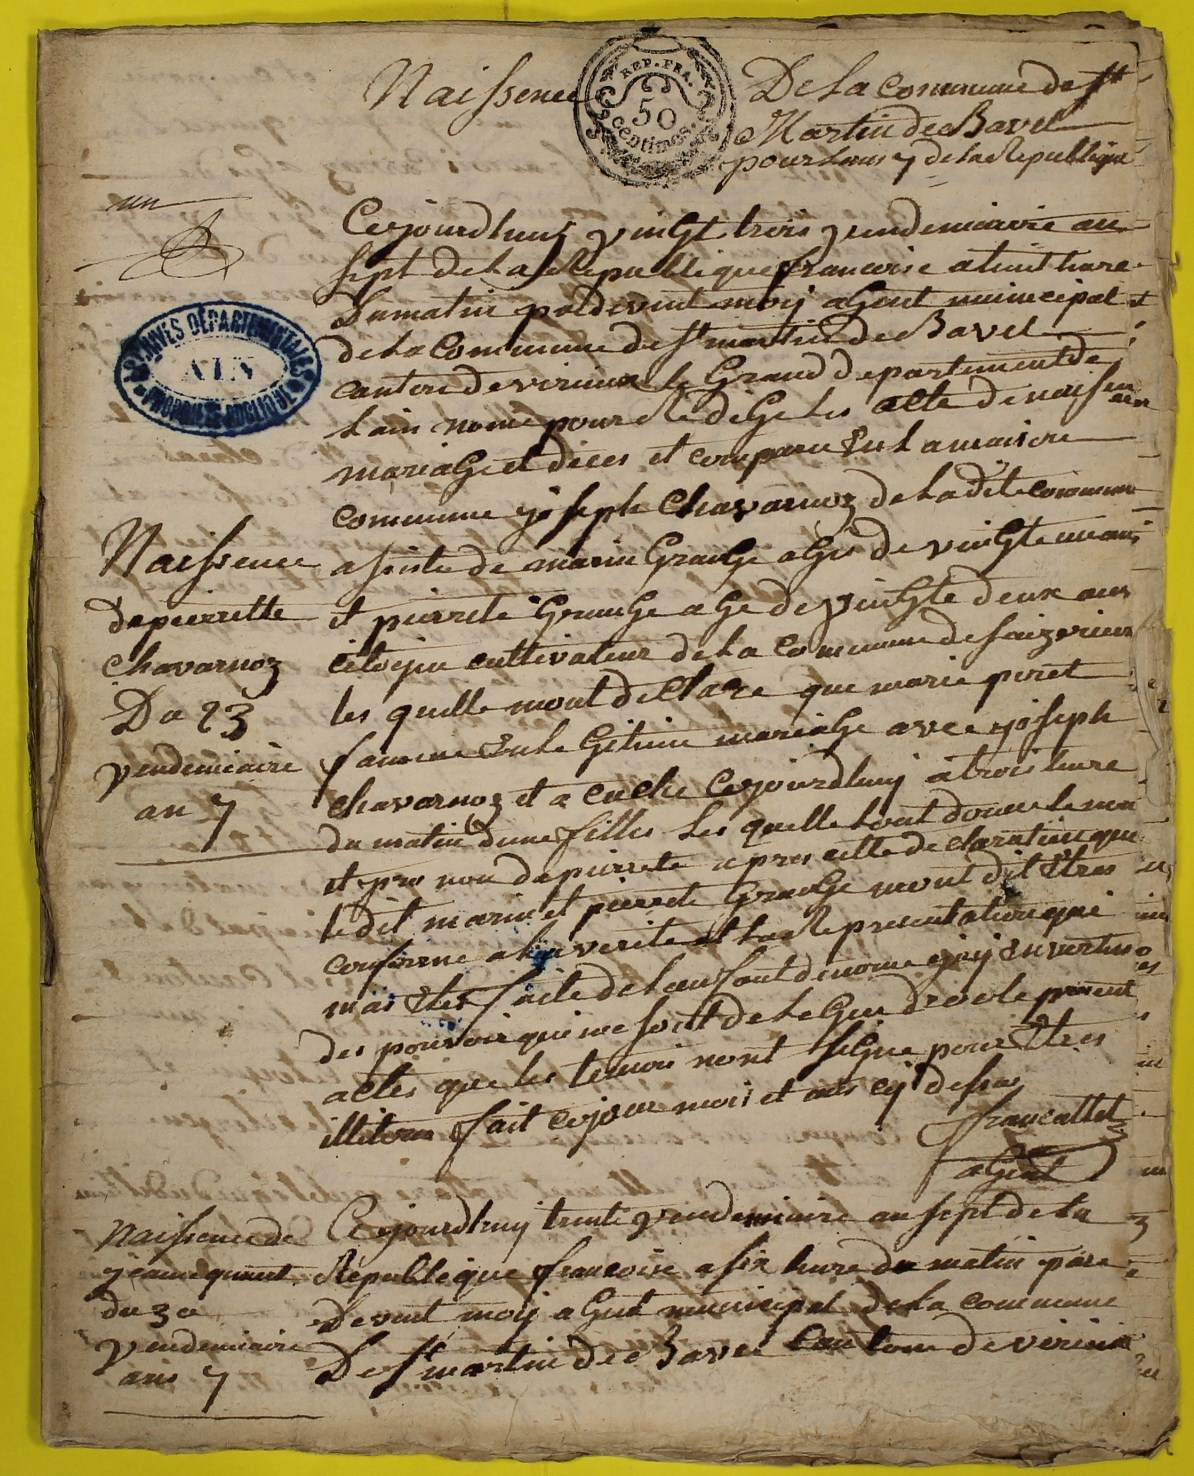 Naissence
REP. FRA.
50
centimes
De la commune de st
Martin de Bavel
pour lans 7 de la Republique
un
ARCHIVES DÉPARTEMENTALES
AIN
Cejourdhuij vingt trois vendemiaire an
sept de la Republique francoise a huit hure
du matin pardevent moij agent municipal
de la commune de st martin de Bavel
canton de virieux le Grand departement de
lain nomé pour Redigé les acte de naissence
mariage et déces et comparu en la maison
commune joseph chavarnoz de la dite commune
Naissence
de pierrette
chavarnoz
Du 23
vendemiaire
an 7
asisté de marin Grange agé de vingt un ans
et pierrete Grange agé de vingte deux ans
citoijen cultivateur de la commune de
les quelle mont declaré que marie peret
famme en le Gitime mariage avec joseph
chavarnoz et acuché cejourdhuij a trois hure
du matin dune fille les quelle lont donné le nom
et pre nom de pierrete apres cette declaration que
le dit marin et pierrete Grange mont dit Etres
conforme a la verité et la Representation qui
mas Etes faite de lanfant denomé jaij en vertu
des pouvoir qui me sont delegué dresé le present
actes que les temoin nont signé pour Etres
illiteres fait cejour mois et ans cij desus
francallet
agent
Naissence de
du 30
vendemiaire
ans 7
Cejourdhuij trente vendemiaire an sept de la
Republique francoise a six hure du matin parr
devent moij agent municipal de la commune
De st martin de Bavel canton de virieux